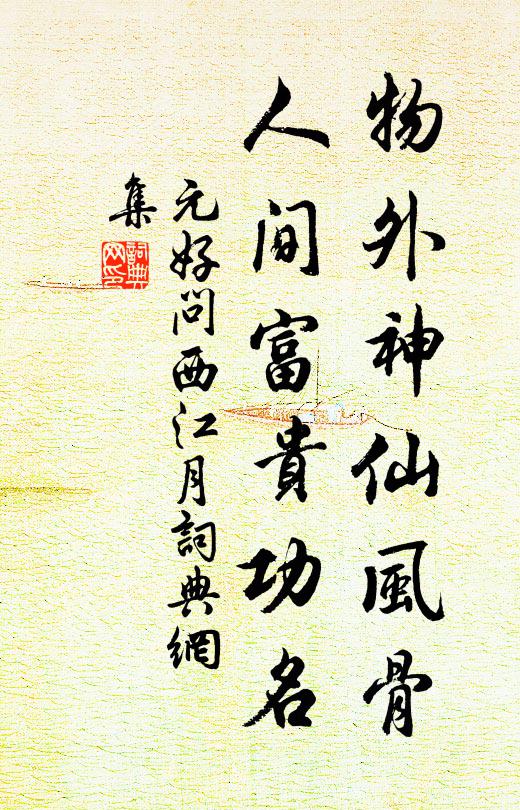 物外神仙風骨
人間富貴功名
元好問西江月詞典網
集
詞典
网印